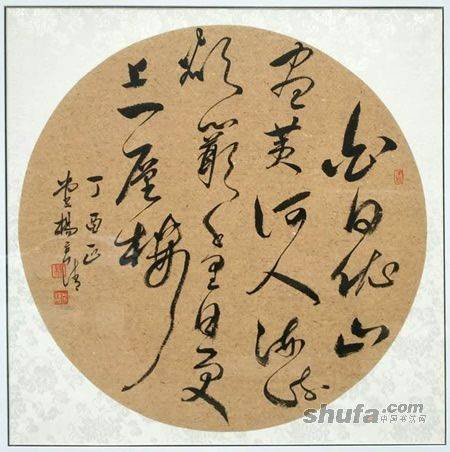 白日依山
盡黄河入海流
欲窮千里目更
上一層樓
丁酉
楊
shufa.com
中国书法网